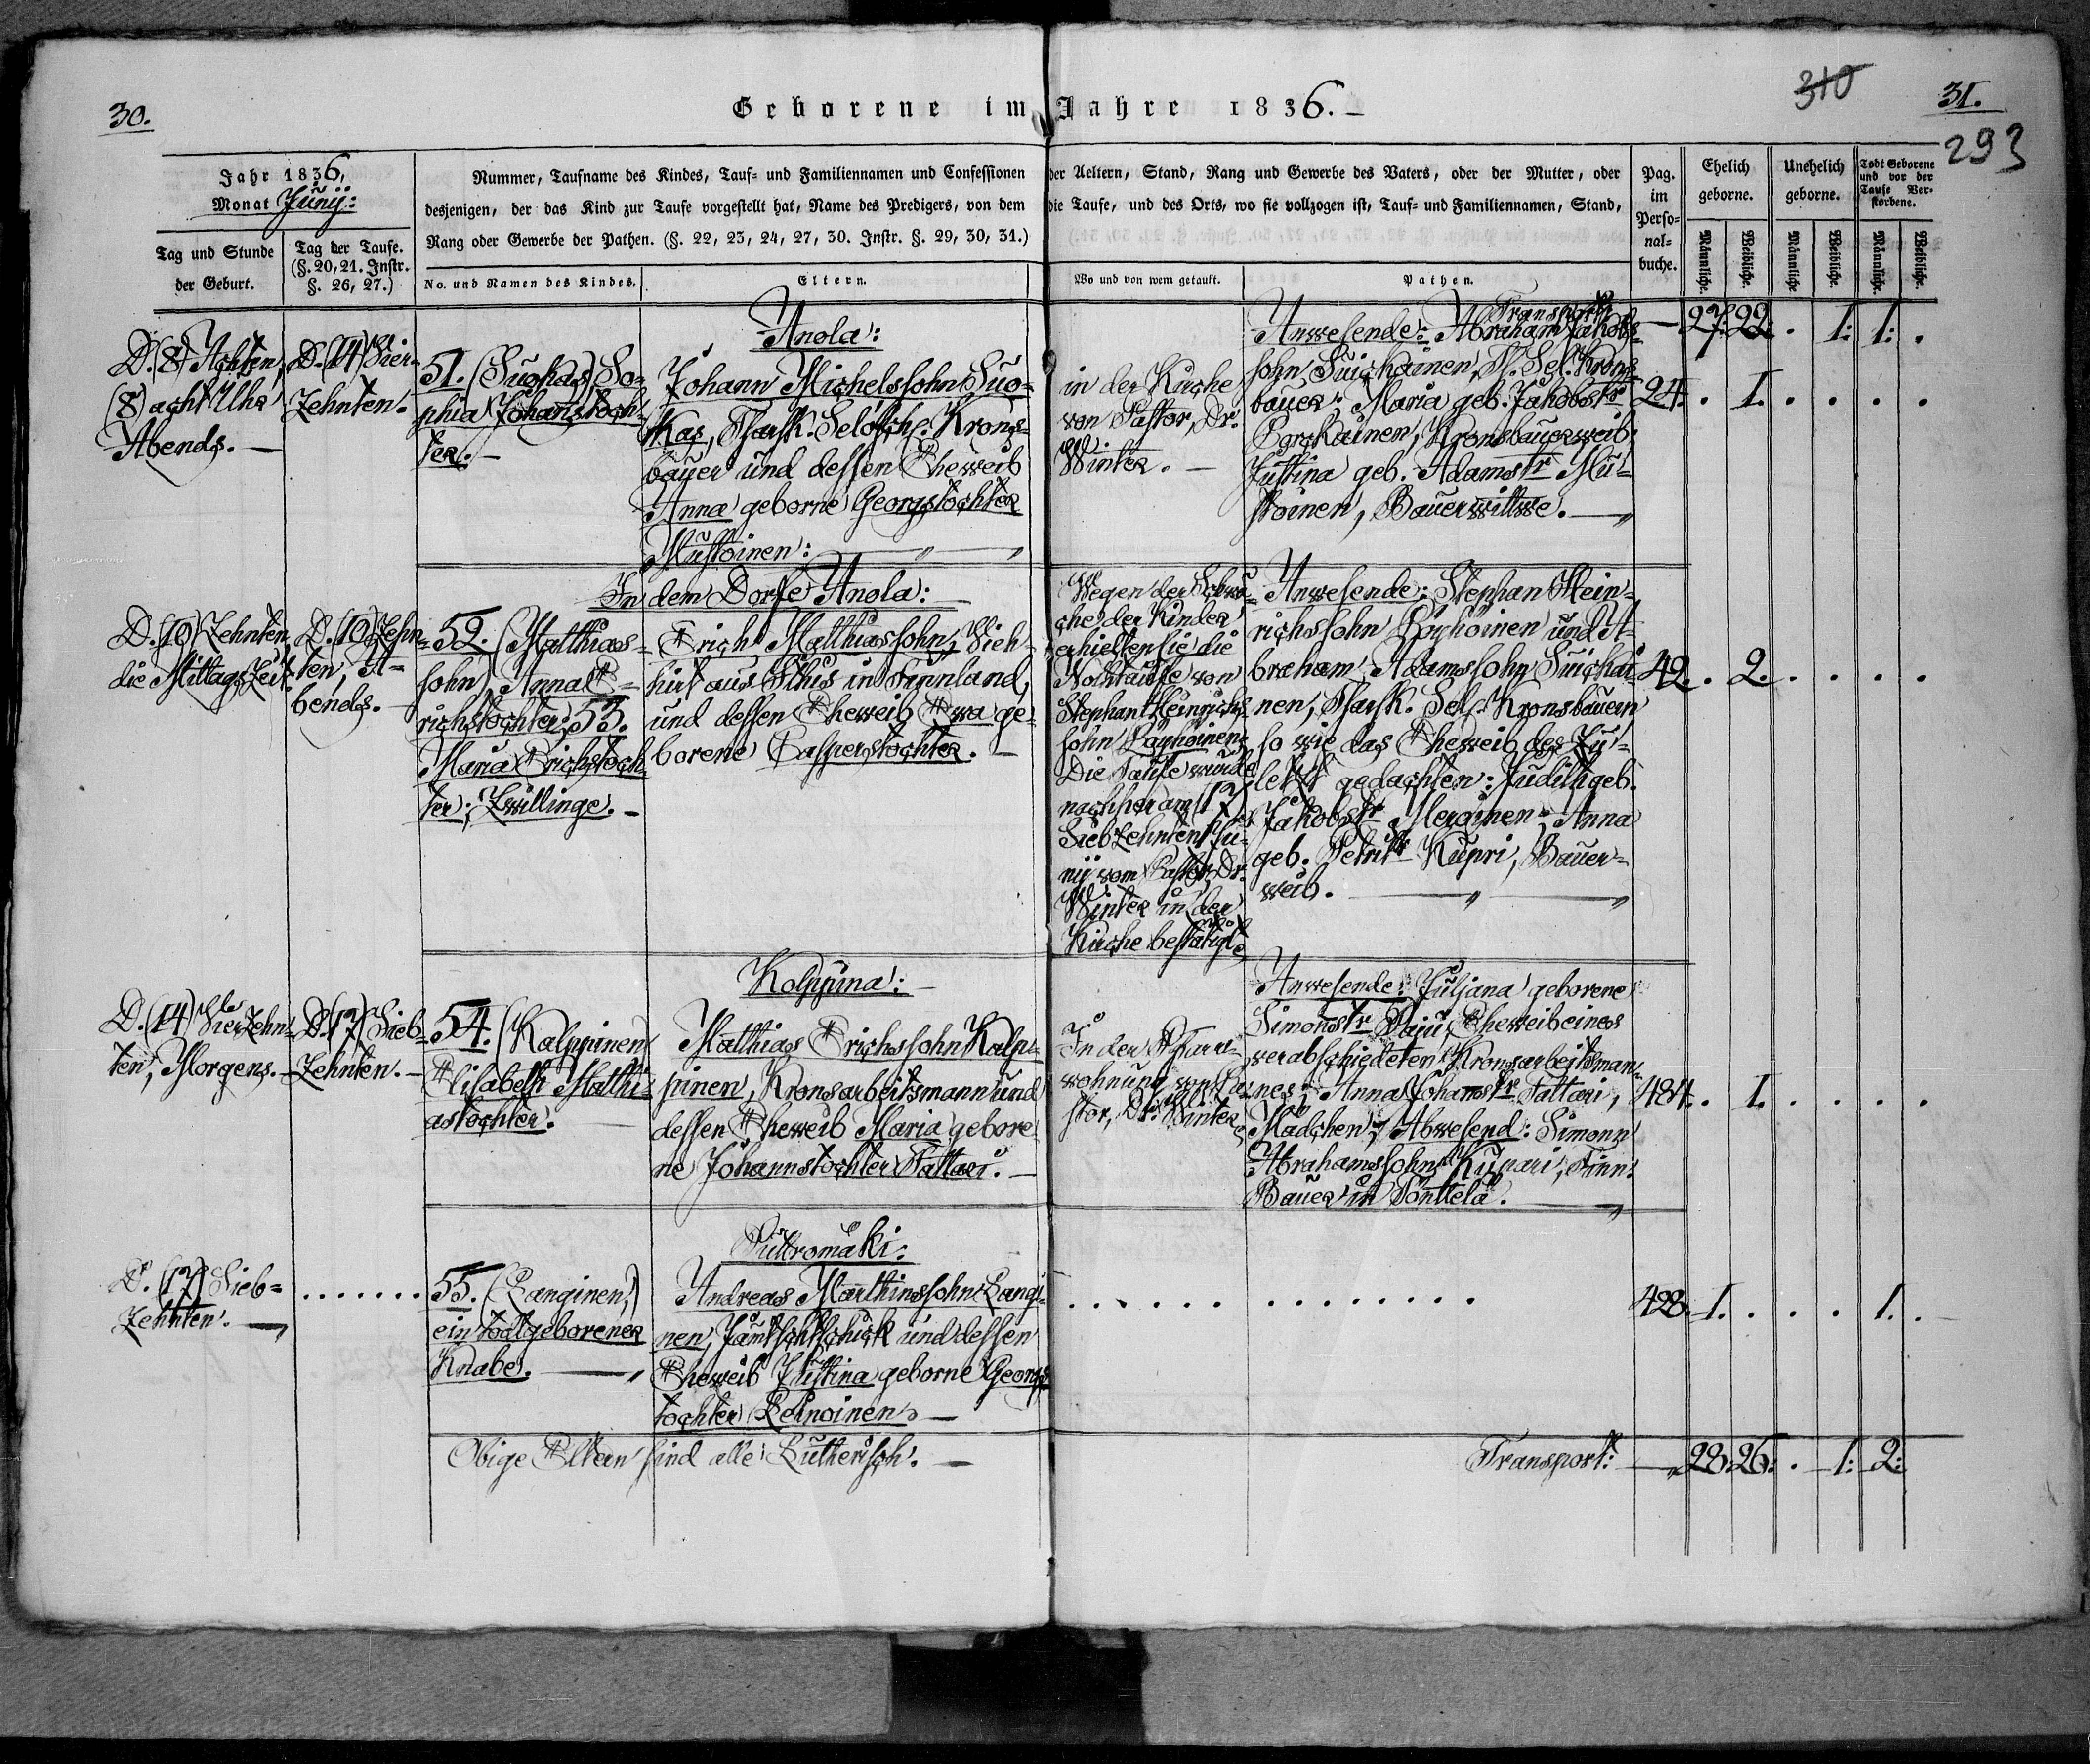 30.
Geborene im Jahre 1836.
310
31.
293
Jahr 1836,
Monat Junij:
Tag und Stunde
der Geburt.
Tag der Taufe.
(§. 20, 21. Instr.
§. 26, 27.)
Nummer, Taufname des Kindes, Tauf- und Familiennamen und Confessionen der Aeltern, Stand, Rang und Gewerbe des Vaters, oder der Mutter, oder
desjenigen, der das Kind zur Taufe vorgestellt hat, Name des Predigers, von dem die Taufe, und des Orts, wo sie vollzogen ist, Tauf- und Familiennamen, Stand,
Rang oder Gewerbe der Pathen. (§. 22, 23, 24, 27, 30. Instr. §. 29, 30, 31.)
No. und Namen des Kindes.
Eltern.
Wo und von wem getauft.
Pathen.
Pag.
im
Perso-
nal-
buche.
Ehelich
geborne.
Unehelich
geborne.
Todt Geborene
und vor der
Taufe Ver-
storbene.
Männliche.
Weibliche.
Männliche
Weibliche.
Männliche.
Weibliche.
Transport:
— 27. 22. . 1: 1: .
Anola:
D. (8) Achten,
(8) acht Uhr
Abends. —
D. (14) Vier-
zehnten.
51. (Suokas) So-
phia Johannstoch-
ter. —
Johann Michelssohn Suo-
kas, Pfarrk. Selösche. Krons-
bauer und dessen Eheweib
Anna geborne Georgstochter
Mustoinen:
in der Kirche
von Pastor, Dr.
Winter. —
Anwesende: Abraham Jakobs-
sohn Suickainen, Pf. Sel. Krons
bauer; Maria geb. Jakobstr
Borckainen, Kronsbauerweib;
Justina geb. Adamstr Mu-
stoinen, Bauerwittwe. —
24. . 1. . . . .
In dem Dorfe Anola:
D. (10) Zehnten,
die Mittags Zeit.
D. (10) Zehn-
ten, A-
bends.
52. (Matthias-
sohn) Anna E-
richstochter; 53.
Maria Erichstoch-
ter; Zwillinge. —
Erich Matthiassohn, Vieh-
hirt aus Sthis in Finnland,
und dessen Eheweib Ewa ge-
borene Casperstochter. —
Wegen der Schwä-
che der Kinder
erhielten sie die
Nothtaufe von
Stephan Heinrichs
sohn Pöyhöinen;
Die Taufe wurde
nachher am (17)
Siebzehnten Ju-
nij vom Pastor, Dr.
Winter in der
Kirche bestätigt
Anwesende: Stephan Hein-
richssohn Pöyhöinen und A-
braham Adamssohn Suickai
nen, Pfarrk. Sels. Kronsbauern
so wie das Eheweib des Zu-
letzt gedachten: Judith geb.
Jakobstr Meroinen; Anna
geb. Petritr Kupri, Bauer-
weib. —
42. . 2. . . . .
Kolppina: —
D. (14) Vierzehn-
ten, Morgens. —
D. (17) Sieb-
zehnten. —
54. (Kalppinen)
Elisabeth Matthi-
astochter.
Matthias Erichssohn Kalp-
pinen, Kronsarbeitsmann und
dessen Eheweib Maria gebore
ne Johannstochter Tattari. —
In der Pfarr-
wohnung von Pa-
stor, Dr. Winter
Anwesende: Juljana geborene
Simonstr Paju, Eheweib eines
verabschiedeten Kronsarbeitsman-
nes; Anna Johanstr Tattari,
Mädchen; Abwesend: Simonn
Abrahamssohn Kupari, Finn.
Bauer in Pönttelä.
484. . 1. . . . .
Püttromäki:
D. (17) Sieb-
zehnten. —
. . . . . . .
55. (Langinen,)
ein todtgeborener
Knabe. —
Andreas Marthinssohn Langi-
nen, Jämtschtschick und dessen
Eheweib Justina geborne Georgs
tochter Lehnoinen. —
. . . . . . . . . . . . . .
428. 1. . . . 1. .
Obige Eltern sind alle Lutherisch. —
Transport: — 28. 26. . 1: 2: